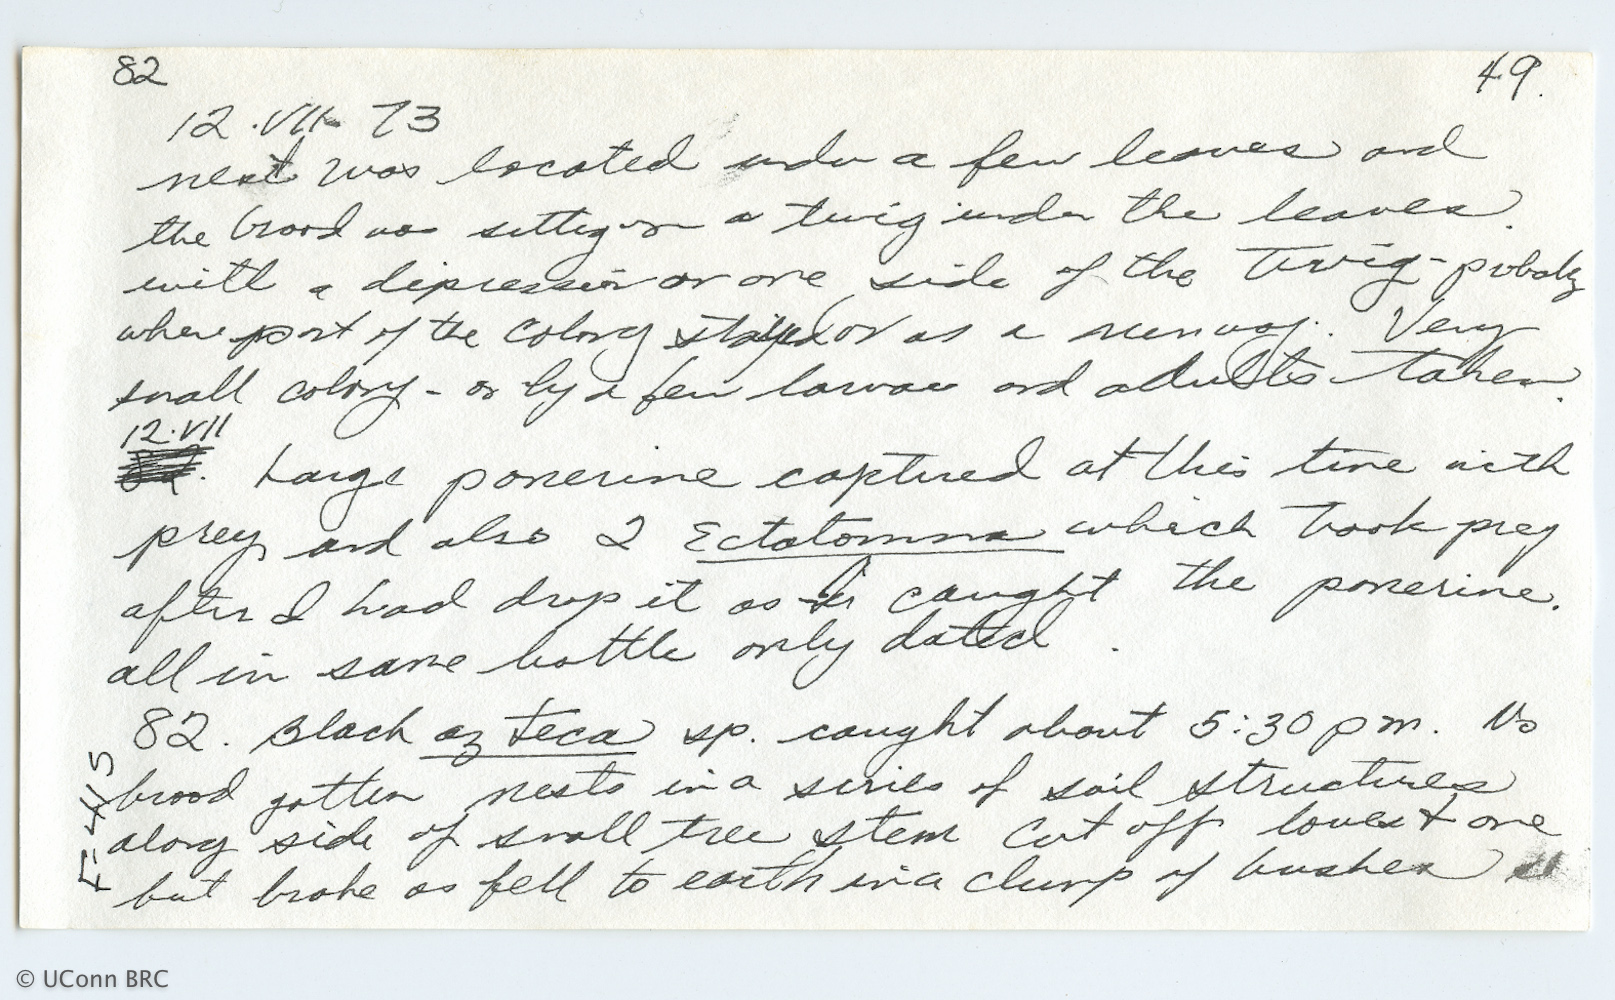 82
49.
12.VII-73
nest was located under a few leaves and
the brood was setting on a twig under the leaves.
with a depression on one side of the twig - probably
where part of the colony stayed or as a runway. Very
small colony - only a few larvae and adults taken.
12.VII
Large ponerine captured at this time with
prey, and also 2 Ectatomma which took prey
after I had drop it as I caught the ponerine.
all in same bottle only dated.
82. Black azteca sp. caught about 5:30 pm. No
brood gotten nests in a series of soil structures
along side of small tree stem Cut off lowest one
but broke as fell to earth in a clump of bushes
F-415
© UConn BRC